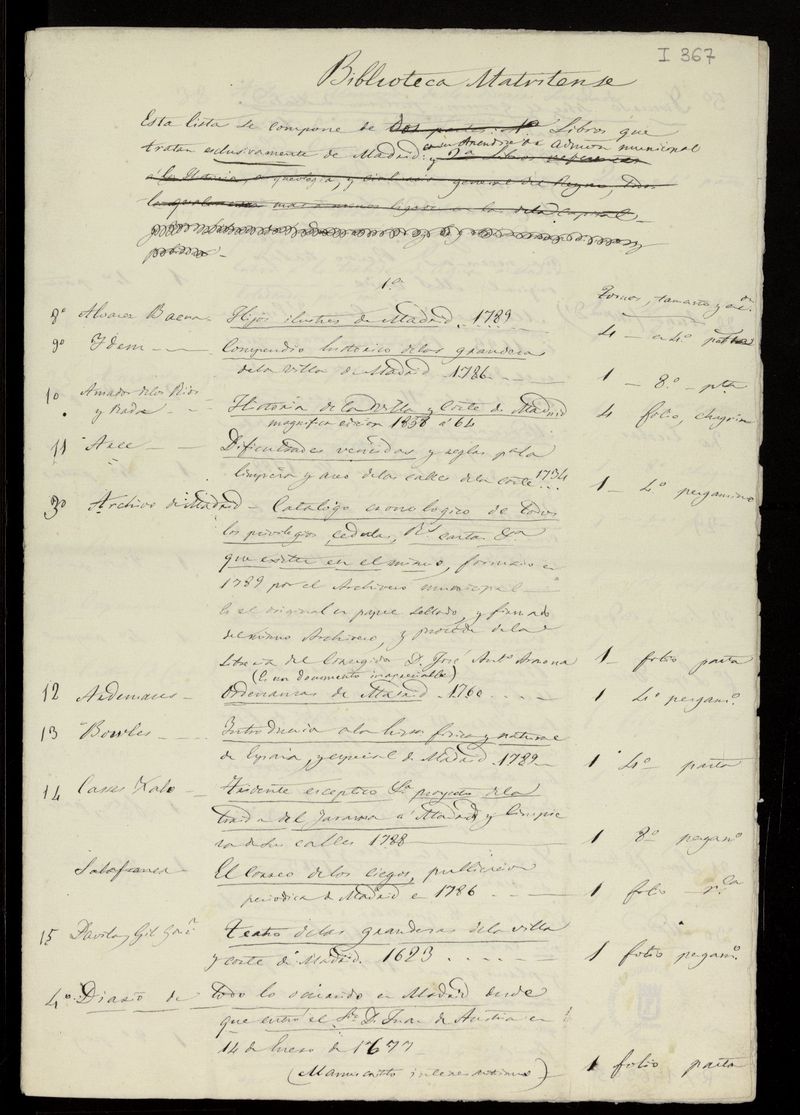 I 367
Biblioteca Matritense
Esta lista se compone de dos partes. 1ª Libros que
tratan esclusivamente de Madrid: y 2ª Libros
con un Apendice de Admon municipal
a la Historia, arqueologia, y civilizacion general del Reyno, todos
1ª
Tomos, tamaño y
8º Alvarez Baena - Hijos ilustres de Madrid. 1789 4 - en 4º pasta
9º Idem - Compendio historico de las grandezas
de la Villa de Madrid 1786 1 - 8º - pta
10 Amador de los Rios
y Rada - Historia de la Villa y Corte de Madrid 4 folio, chagrin
magnifica edicion 1858 á 64
11 Arce - Dificultades vencidas y reglas pª la
limpieza y aseo de las calles de la Corte 1734 1 - 4º pergamino
3º Archivo de Madrid - Catalogo cronologico de todos
los privilegios, cedulas, Rs cartas &ra
que existen en el mismo, formado en
1789 por el Archivero municipal
Es el original en papel sellado, y firmado
del mismo Archivero, y procede de la
libreria del Corregidor D. José Antº Armona 1 - folio pasta
(Es un documento inapreciable)
12 Ardemans - Ordenanzas de Madrid. 1760 1 4º pergamº
13 Bowles - Introduccion a la histª fisica y natural
de España, y especial de Madrid. 1789 1 4º pasta
14 Casas Xalo - Axidente esceptico sre proyecto de la
traida del Jarama á Madrid y limpie
za de sus calles 1788 1 8º pergamº
Salafranca - El Correo de los ciegos, publicacion
periodica de Madrid en 1786 1 folio rca
15 Davila, Gil Gonz - Teatro de las grandezas de la villa
y corte de Madrid. 1623 1 folio pergamº
4º Diario de todo lo sucedido en Madrid desde
que entró el Sr D. Juan de Austria en
14 de Enero de 1677
(Manuscrito interesantisimo) 1 folio pasta